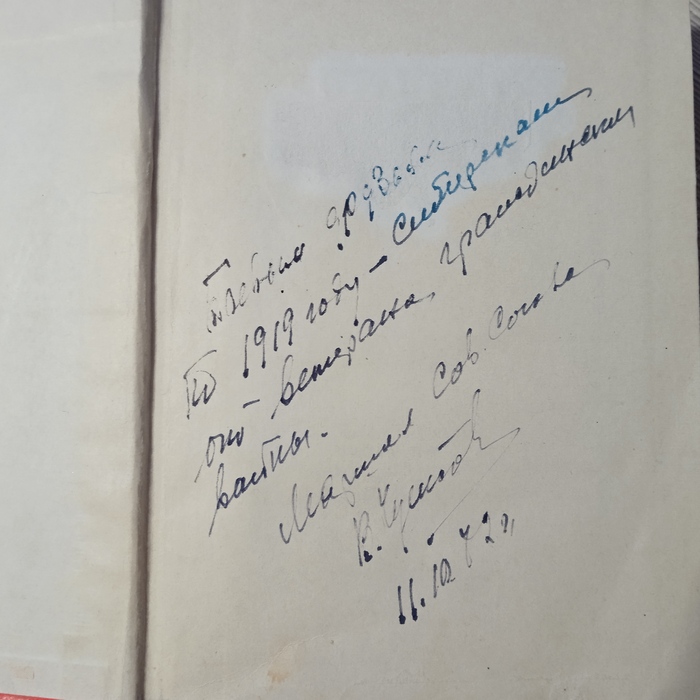 Боевым друзьям
По 1919 году – сибирякам
ветерана гражданской
войны.
Маршал Сов Союза
В. Чуйков
11.10.72 г.